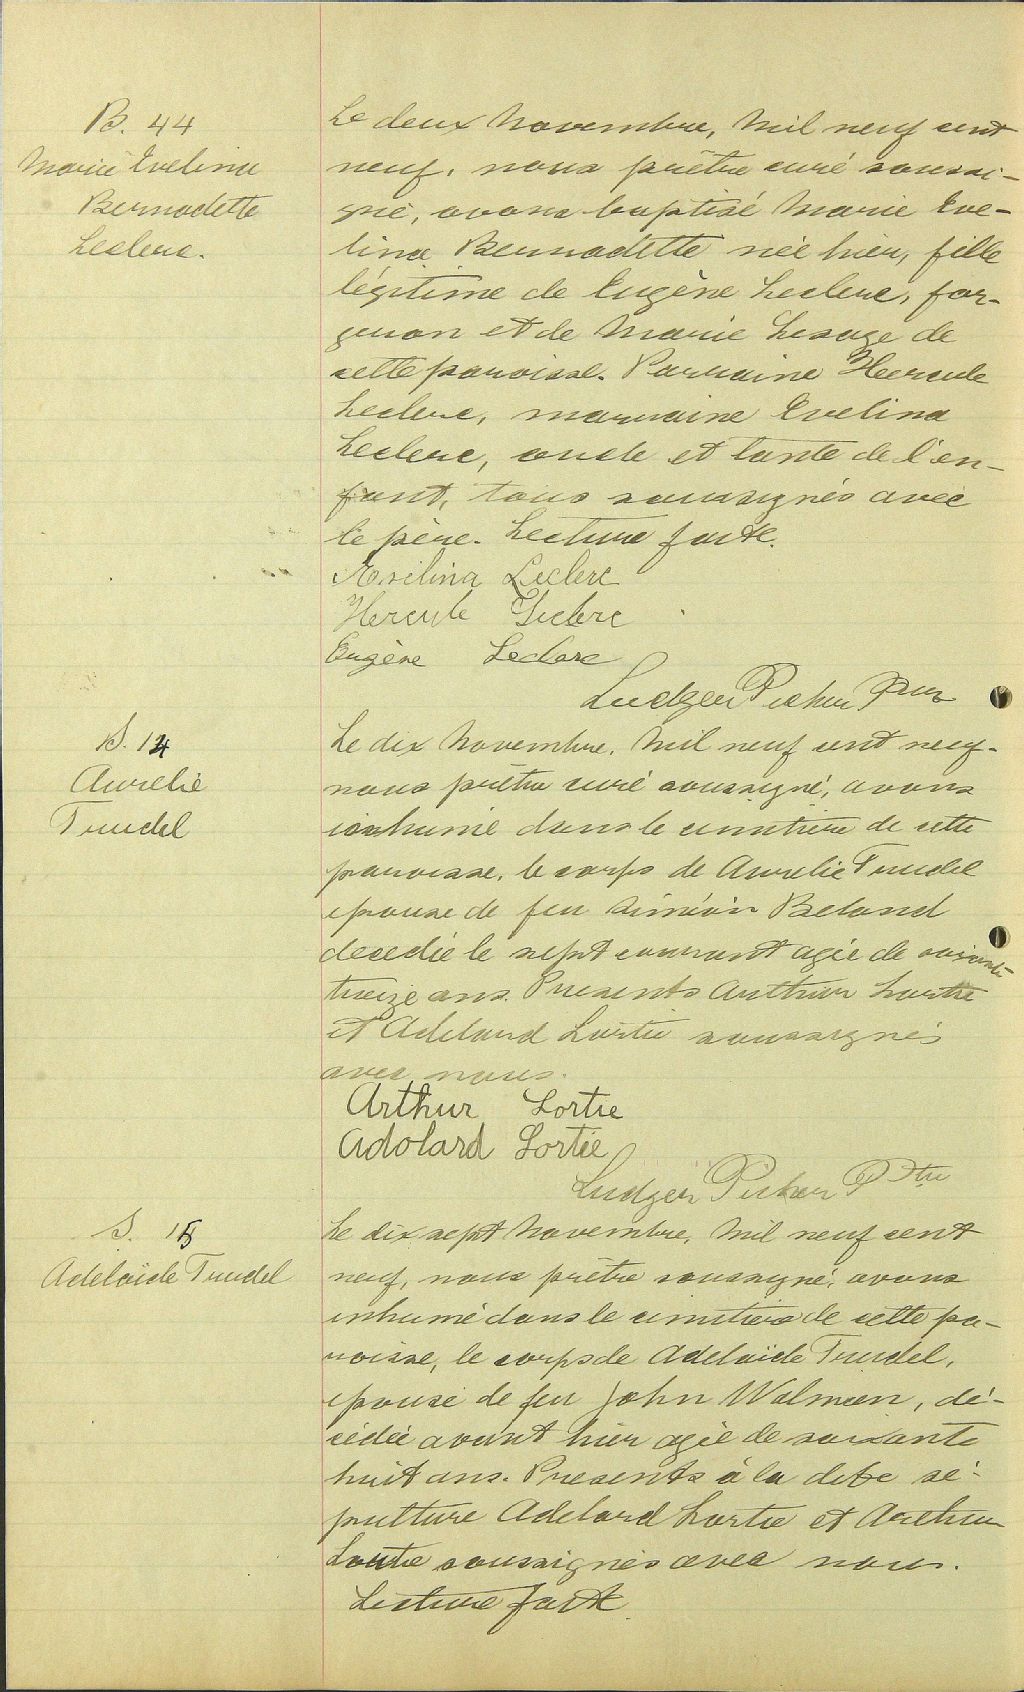 B. 44
Marie Evelina
Bernadette
Leclerc.
Le deux Novembre, mil neuf cent
neuf, nous prêtre curé soussi-
gné, avons baptisé Marie Eve-
lina Bernadette née hier, fille
légitime de Eugène Leclerc, for-
geron et de Marie Lesage de
cette paroisse. Parraine Hercule
Leclerc, marraine Evelina
Leclerc, oncle et tante de l'en-
fant, tous soussignés avec
le père. Lecture faite.
Leclerc
Hercule Leclerc
Eugène Leclerc
Ludger Ptre
S. 14
Aurelie
Trudel
Le dix Novembre, mil neuf cent neuf-
nous prêtre curé soussigné, avons
inhumé dans le cimetière de cette
paroisse, le corps de Aurelie Trudel
epouse de feu Siméon Beland
decedée le sept courant agée de soixante
treize ans. Presents Arthur Lortie
et Adelard Lortie soussignés
avec nous.
Arthur Lortie
Adolard Lortie
Ludger Ptre
S. 15
Adelaïde Trudel
Le dix sept Novembre, mil neuf cent
neuf, nous prêtre soussigné, avons
inhumé dans le cimetière de cette pa-
roisse, le corps de Adelaïde Trudel,
epouse de feu John Walmen, dé-
cédée avant hier agée de soixante
huit ans. Presents à la dite sé-
pulture Adelard Lortie et Arthur
Lortie soussignés avec nous.
Lecture faite